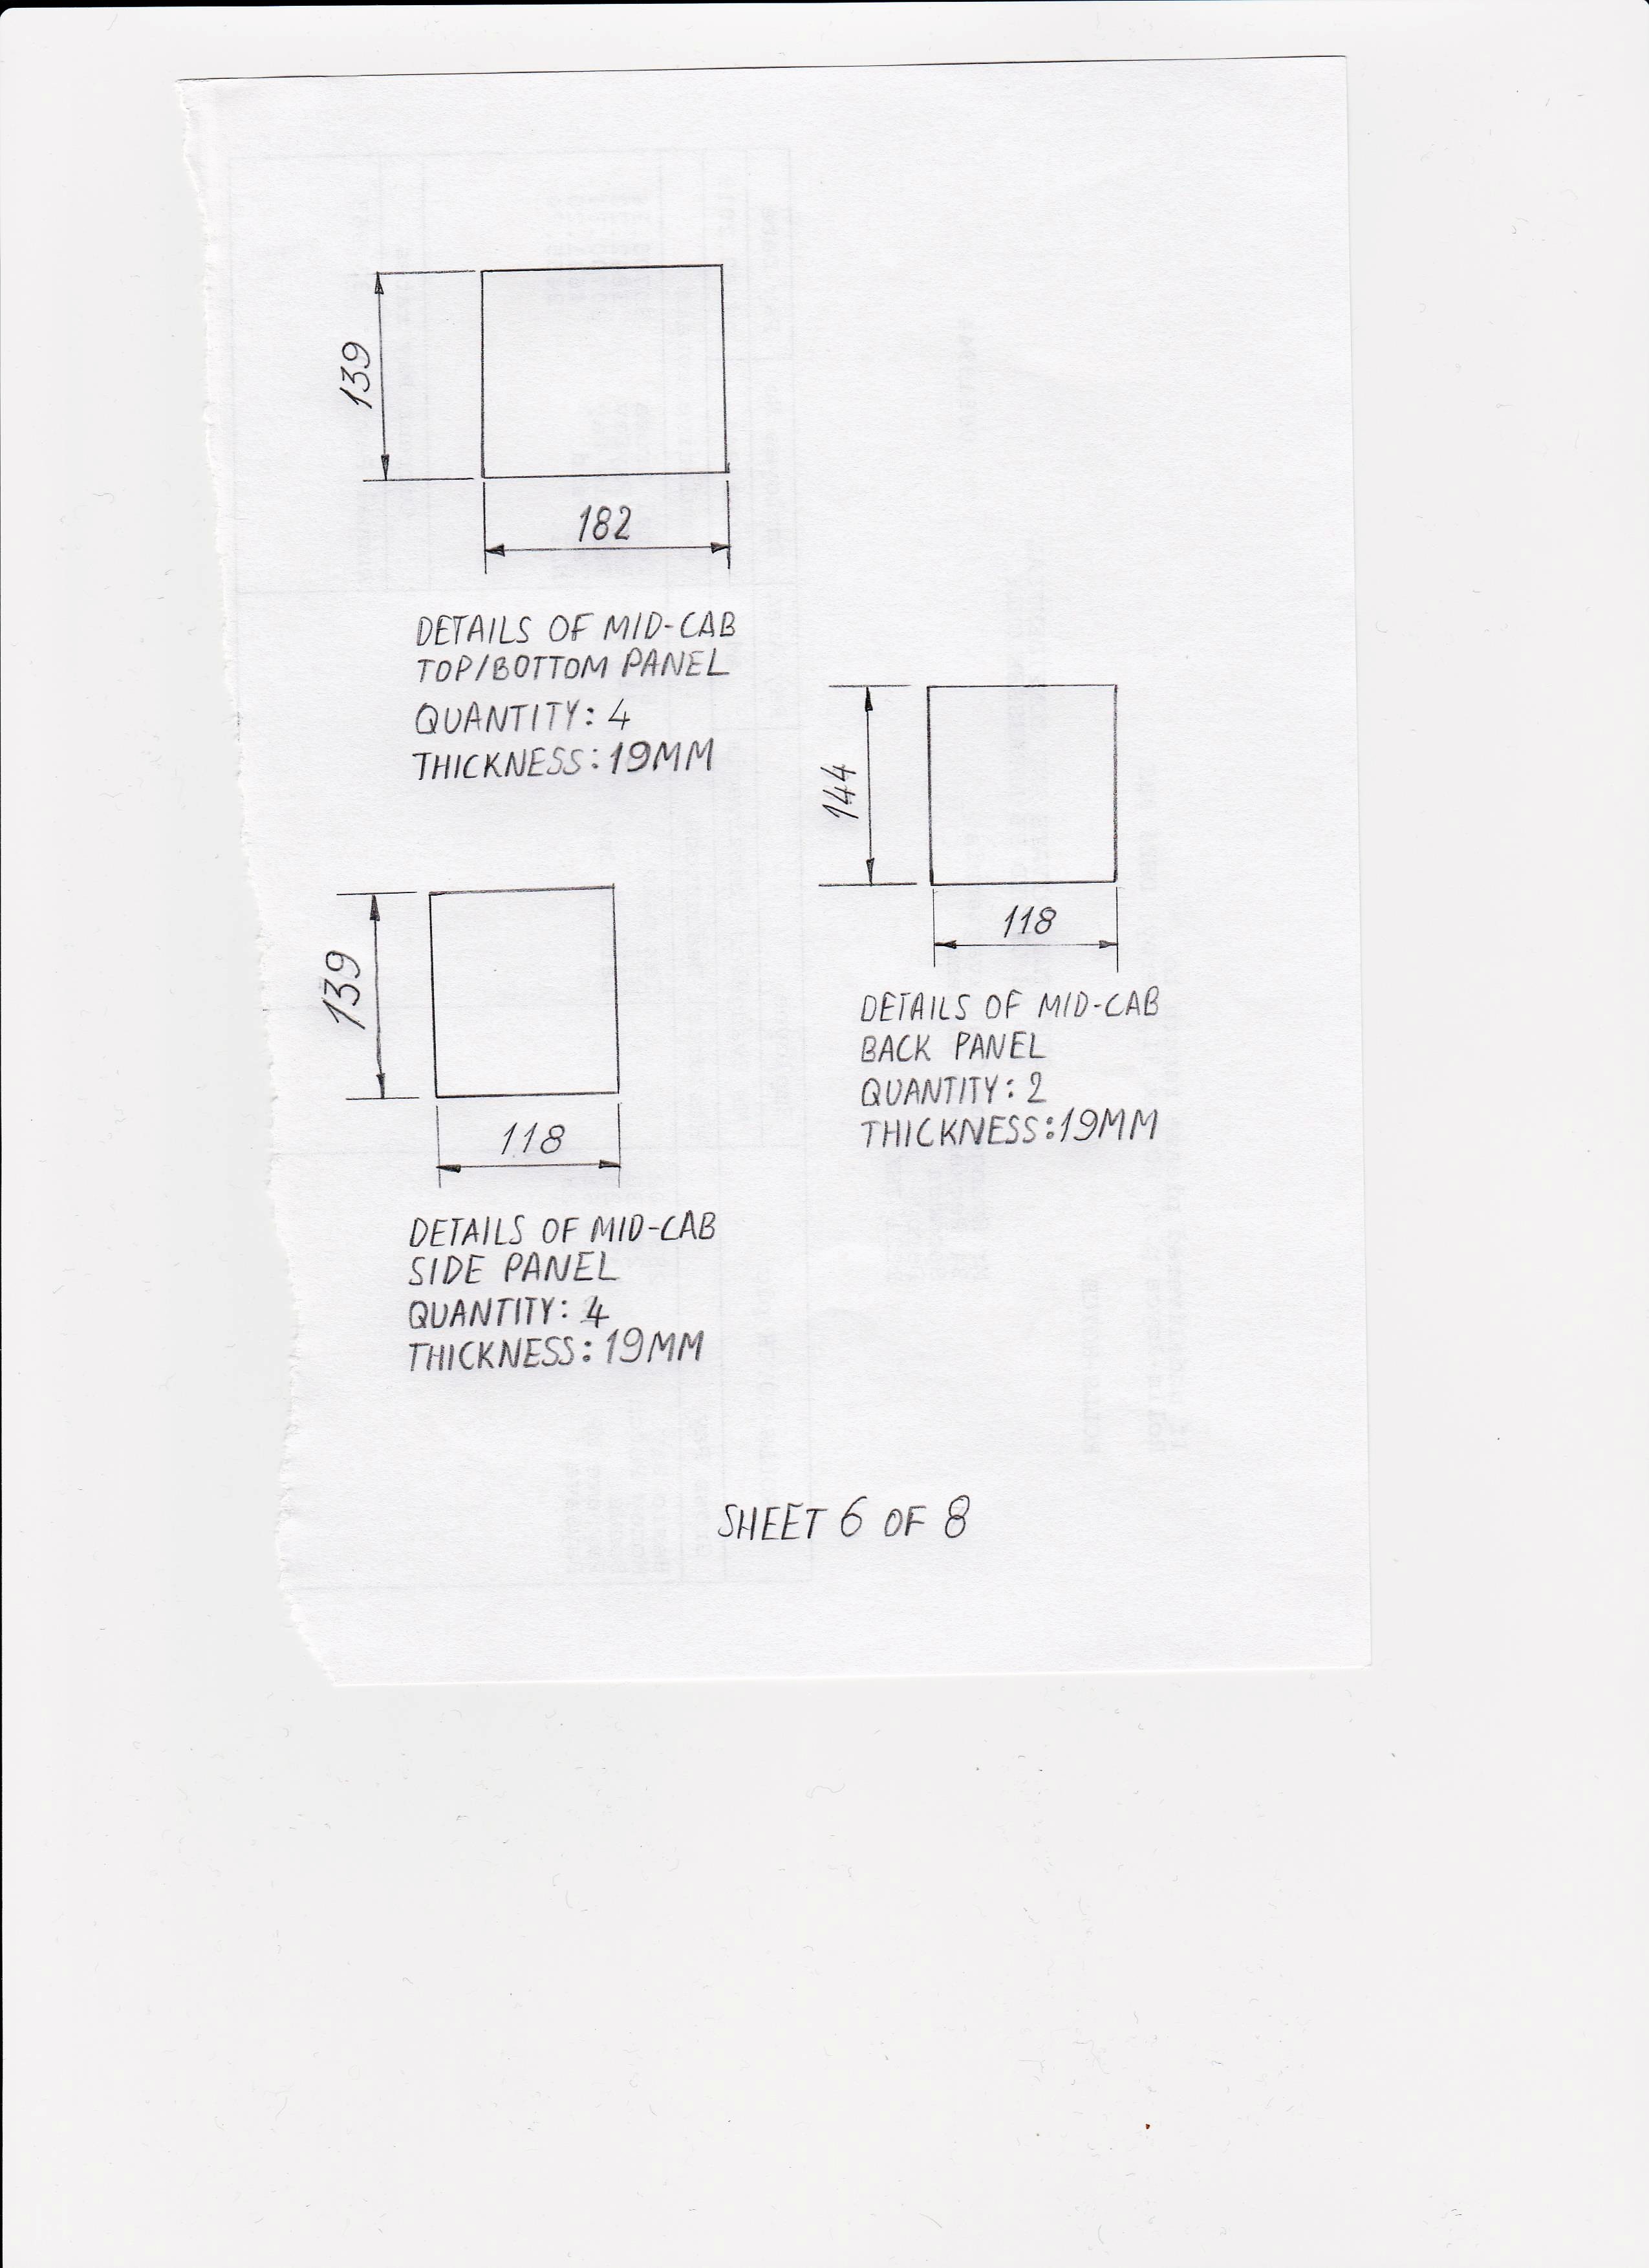 139
182
DETAILS OF MID-CAB
TOP/BOTTOM PANEL
QUANTITY: 4
THICKNESS: 19MM
144
118
DETAILS OF MID-CAB
BACK PANEL
QUANTITY: 2
THICKNESS:19MM
139
118
DETAILS OF MID-CAB
SIDE PANEL
QUANTITY: 4
THICKNESS: 19MM
SHEET 6 OF 8